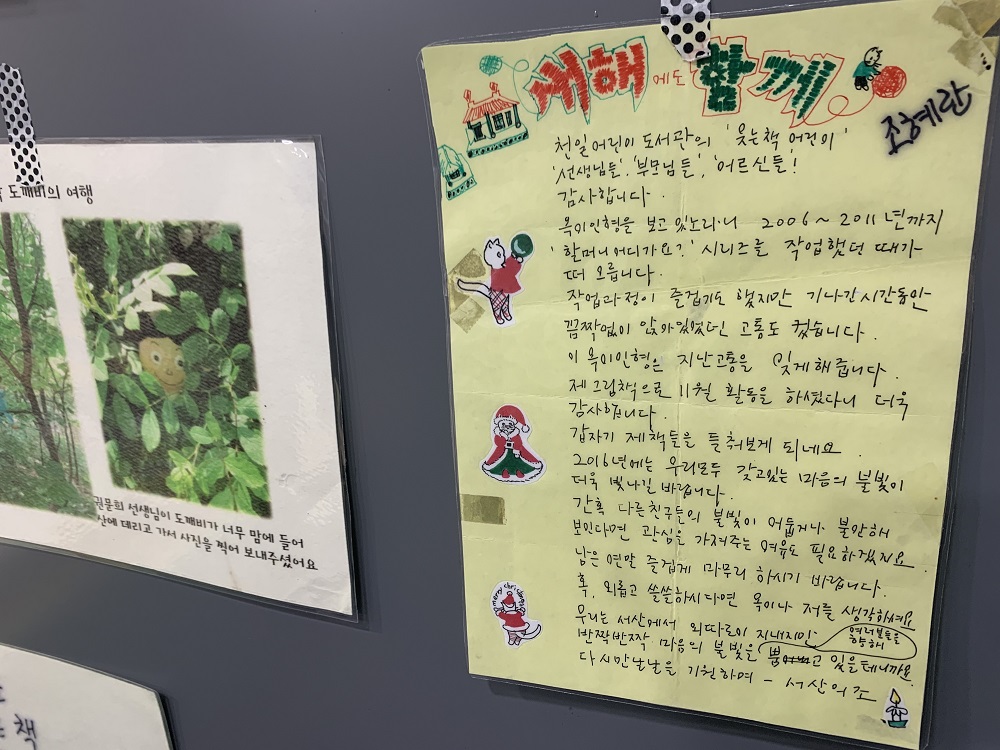 도깨비의 여행
권문희 선생님이 도깨비가 너무 맘에 들어
산에 데리고 가서 사진을 찍어 보내주셨어요
는 책
새해에도 함께
조혜란
천일어린이도서관의 '웃는책 어린이'
'선생님들', '부모님들', '어르신들'!
감사합니다.
옥이인형을 보고 있노라니 2006~2011년까지
'할머니 어디가요?' 시리즈를 작업했던 때가
떠오릅니다.
작업과정이 즐겁기도 했지만 기나긴시간동안
꼼짝없이 앉아있었던 고통도 컸습니다.
이 옥이인형은 지난고통을 잊게해줍니다.
제그림책으로 11월 활동을 하셨다니 더욱
감사합니다.
갑자기 제책들을 들춰보게 되네요.
2016년에는 우리모두 갖고있는 마음의 불빛이
더욱 빛나길 바랍니다.
간혹 다른친구들의 불빛이 어둡거나 불안해
보인다면 관심을 가져주는 여유도 필요하겠지요
남은 연말 즐겁게 마무리 하시기 바랍니다.
혹, 외롭고 쓸쓸하시다면 옥이나 저를 생각하셔요
우리는 서산에서 외따로이 지내지만
여러분들을 향해
반짝반짝 마음의 불빛을 뿜고 있을테니까요.
다시만날날을 기원하며 - 서산의 조
merry christmas